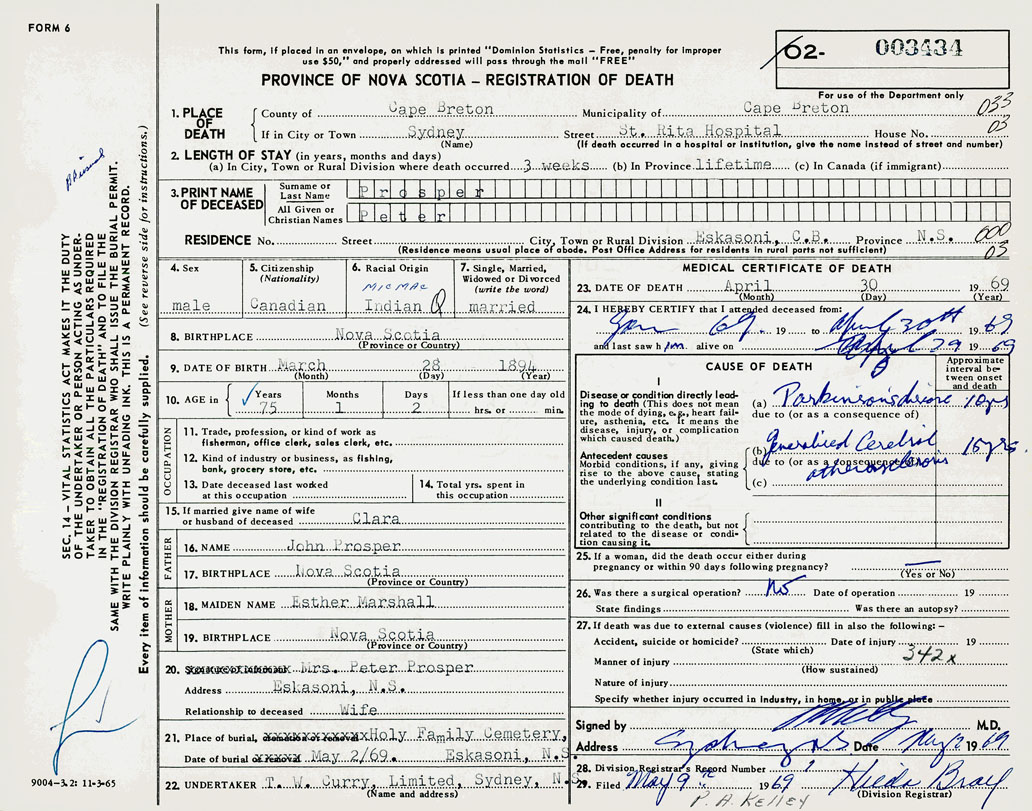 FORM 6
This form, if placed in an envelope, on which is printed "Dominion Statistics – Free, penalty for improper
use $50," and properly addressed will pass through the mail "FREE"
PROVINCE OF NOVA SCOTIA – REGISTRATION OF DEATH
62- 003434
For use of the Department only
033
03
1. PLACE OF DEATH
County of Cape Breton Municipality of Cape Breton
If in City or Town Sydney Street St. Rita Hospital House No.
(Name) (If death occurred in a hospital or institution, give the name instead of street and number)
2. LENGTH OF STAY (in years, months and days)
(a) In City, Town or Rural Division where death occurred 3 weeks (b) In Province lifetime (c) In Canada (if immigrant)
3. PRINT NAME OF DECEASED
Surname or Last Name Prosper
All Given or Christian Names Peter
RESIDENCE No. Street City, Town or Rural Division Eskasoni, C.B. Province N.S.
600
03
(Residence means usual place of abode. Post Office Address for residents in rural parts not sufficient)
4. Sex
male
5. Citizenship
(Nationality)
Canadian
6. Racial Origin
MICMAC
Indian
7. Single, Married,
Widowed or Divorced
(write the word)
married
8. BIRTHPLACE Nova Scotia
(Province or Country)
9. DATE OF BIRTH March 28 1894
(Month) (Day) (Year)
10. AGE in
Years Months Days If less than one day old
75 1 2 hrs. or min.
OCCUPATION
11. Trade, profession, or kind of work as
fisherman, office clerk, sales clerk, etc.
12. Kind of industry or business, as fishing,
bank, grocery store, etc.
13. Date deceased last worked
at this occupation
14. Total yrs. spent in
this occupation
15. If married give name of wife
or husband of deceased Clara
FATHER
16. NAME John Prosper
17. BIRTHPLACE Nova Scotia
(Province or Country)
MOTHER
18. MAIDEN NAME Esther Marshall
19. BIRTHPLACE Nova Scotia
(Province or Country)
20. Mrs. Peter Prosper
Address Eskasoni, N.S.
Relationship to deceased Wife
21. Place of burial, Holy Family Cemetery,
Date of burial May 2/69. Eskasoni, N.S.
22. UNDERTAKER T. W. Curry, Limited, Sydney, N.S.
(Name and address)
MEDICAL CERTIFICATE OF DEATH
23. DATE OF DEATH April 30 1969
(Month) (Day) (Year)
24. I HEREBY CERTIFY that I attended deceased from:
Jan 69. 19 to April 30th 1969
and last saw h im. alive on April 29 1969
CAUSE OF DEATH
Approximate
interval be-
tween onset
and death
I
Disease or condition directly lead-
ing to death (This does not mean
the mode of dying, e.g., heart fail-
ure, asthenia, etc. It means the
disease, injury, or complication
which caused death.)
(a) Parkinson's disease 10 yrs
due to (or as a consequence of)
Antecedent causes
Morbid conditions, if any, giving
rise to the above cause, stating
the underlying condition last.
(b) Generalised Cerebral 15 yrs.
due to (or as a consequence of)
atherosclerosis
(c)
II
Other significant conditions
contributing to the death, but not
related to the disease or condi-
tion causing it.
25. If a woman, did the death occur either during
pregnancy or within 90 days following pregnancy?
(Yes or No)
26. Was there a surgical operation? No Date of operation 19
State findings Was there an autopsy?
27. If death was due to external causes (violence) fill in also the following: –
Accident, suicide or homicide? Date of injury 19
(State which)
342x
Manner of injury
(How sustained)
Nature of injury
Specify whether injury occurred in Industry, in home, or in public place
Signed by M.D.
Address Sydney NS Date May 2 1969
28. Division Registrar's Record Number
29. Filed May 9th 1969 Hilda Bray
(Division Registrar)
P. A. KELLEY
SEC. 14 – VITAL STATISTICS ACT MAKES IT THE DUTY
OF THE UNDERTAKER OR PERSON ACTING AS UNDER-
TAKER TO OBTAIN ALL THE PARTICULARS REQUIRED
IN THE "REGISTRATION OF DEATH" AND TO FILE THE
SAME WITH THE DIVISION REGISTRAR WHO SHALL ISSUE THE BURIAL PERMIT.
WRITE PLAINLY WITH UNFADING INK. THIS IS A PERMANENT RECORD.
Every item of information should be carefully supplied. (See reverse side for instructions.)
9004–3.2: 11-3-65